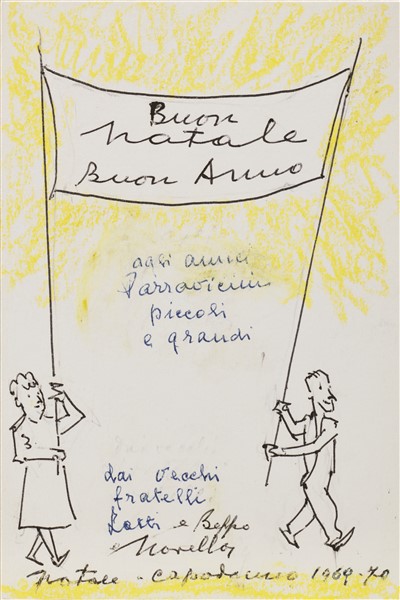 Buon
Natale
Buon Anno
agli amici
Parravicini
piccoli
e grandi
dai vecchi
fratelli
e Beppo
e Novello
Natale - Capodanno 1969-70